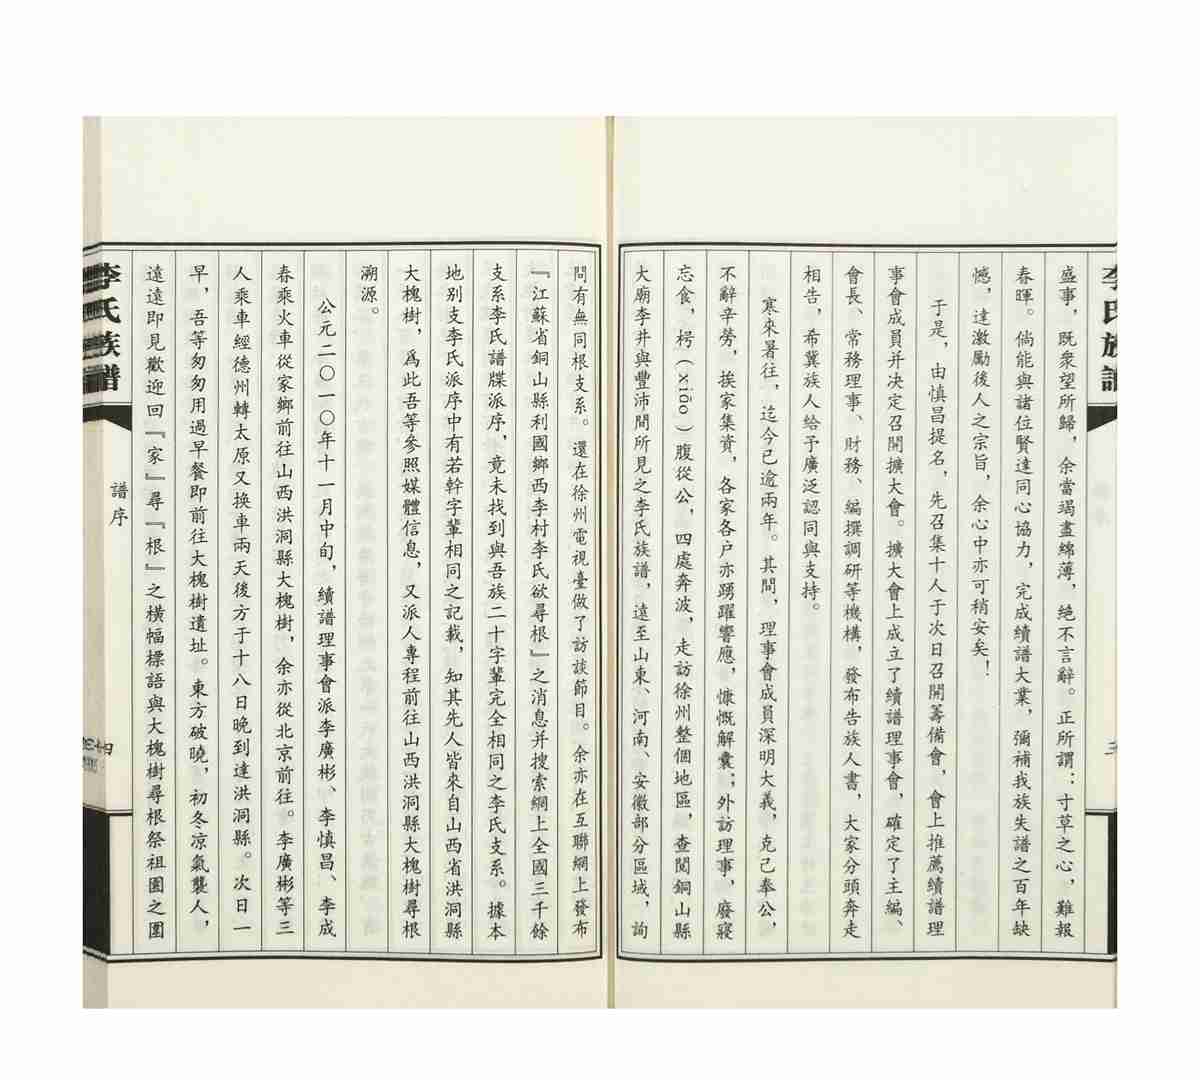 盛事，既衆望所歸，余當竭盡綿薄，絕不言辭。正所謂：寸草之心，難報
春暉。倘能與諸位賢達同心協力，完成續譜大業，彌補我族失譜之百年缺
憾，達激勵後人之宗旨，余心中亦可稍安矣！
于是，由慎昌提名，先召集十人于次日召開籌備會，會上推薦續譜理
事會成員并决定召開擴大會。擴大會上成立了續譜理事會，確定了主編、
會長、常務理事、財務、編撰調研等機構，發布告族人書，大家分頭奔走
相告，希冀族人給予廣泛認同與支持。
寒來暑往，迄今已逾兩年。其間，理事會成員深明大義，克己奉公，
不辭辛勞，挨家集資，各家各户亦踴躍響應，慷慨解囊；外訪理事，廢寢
忘食，枵（xiāo）腹從公，四處奔波，走訪徐州整個地區，查閱銅山縣
大廟李井與豐沛間所見之李氏族譜，遠至山東、河南、安徽部分區域，詢
問有無同根支系。還在徐州電視臺做了訪談節目。余亦在互聯網上發布
『江蘇省銅山縣利國鄉西李村李氏欲尋根』之消息并搜索網上全國三千餘
支系李氏譜牒派序，竟未找到與吾族二十字輩完全相同之李氏支系。據本
地别支李氏派序中有若幹字輩相同之記載，知其先人皆來自山西省洪洞縣
大槐樹，爲此吾等參照媒體信息，又派人專程前往山西洪洞縣大槐樹尋根
溯源。
公元二〇一〇年十一月中旬，續譜理事會派李廣彬、李慎昌、李成
春乘火車從家鄉前往山西洪洞縣大槐樹，余亦從北京前往。李廣彬等三
人乘車經德州轉太原又换車兩天後方于十八日晚到達洪洞縣。次日一
早，吾等匆匆用過早餐即前往大槐樹遺址。東方破曉，初冬凉氣襲人，
遠遠即見歡迎回『家』尋『根』之橫幅標語與大槐樹尋根祭祖園之園
李氏族譜
譜序